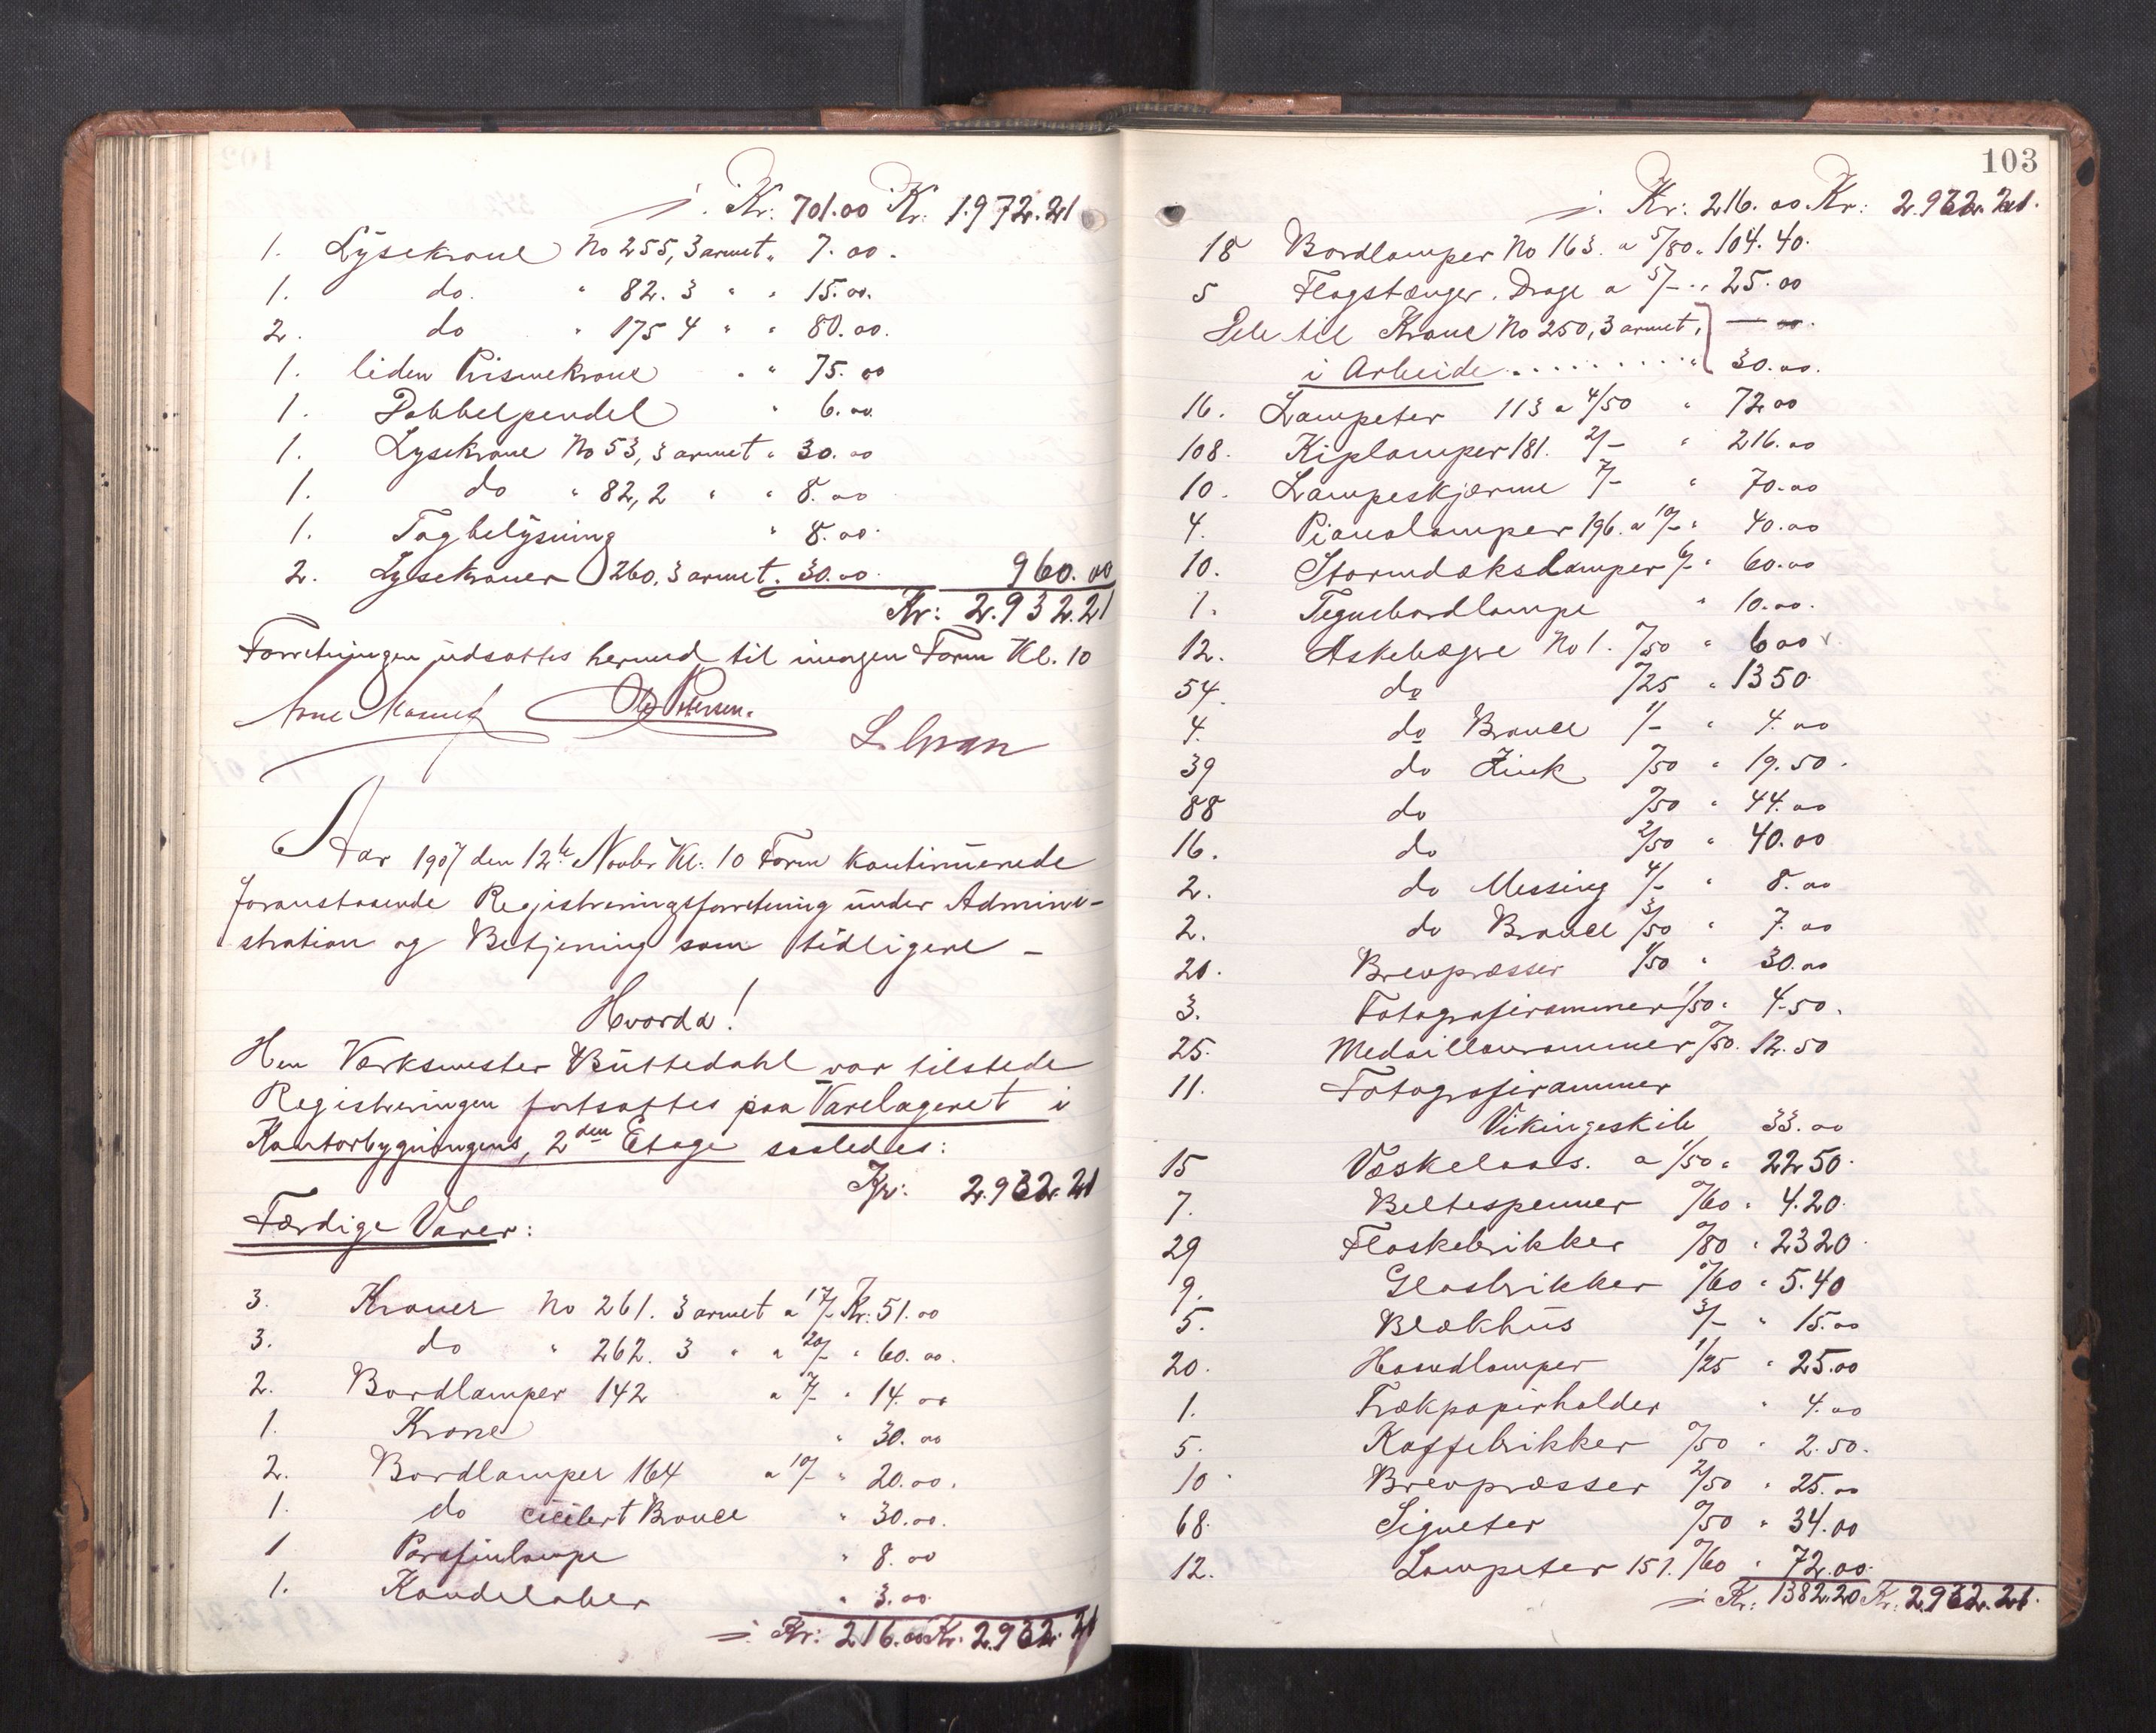 ÷ Kr: 701.00 Kr: 1.972.21
1. Lysekrone No 255, 3 armet " 7.00.
1. do. " 82. 3 " " 15.00.
2. do " 175 4 " " 80.00.
1. liden Prismekrone " " 75.00
1. Dobbelpendel " 6.00
1. Lysekrone No 53, 3 armet " 30.00
1. do " 82, 2 " " 8.00
1. Tagbelysning " 8.00.
2. Lysekroner 260, 3 armet " 30.00 960.00
Kr: 2.932.21
Forretningen udsattes hermed til imorgen Form Kl. 10
Petersen.
Aar 1907 den 12te Novbr Kl. 10 Form kontinuerede
foranstaaende Registreringsforretning under Admini-
stration og Betjening som tidligere –
Hvorda!
Herr Værksmester Büttedahl var tilstede
Registreringen fortsattes paa Varelageret i
Kontorbygningens, 2den Etage saaledes:
Kr: 2.932.21
Færdige Varer:
3. Kroner No 261. 3 armet a 17/- Kr: 51.00
3. do " 262. 3 " a 20/- " 60.00.
2. Bordlamper 142 a 7/- " 14.00
1. Krone " 30.00
2. Bordlamper 164 a 10/- " 20.00.
1. do cicilert Bronce " 30.00.
1 Parafinlampe " 8.00
1. Kandelaber " 3.00.
÷ Kr: 216.00 Kr. 2.932.21
103
÷ Kr: 216.00. Kr: 2.932.21.
18 Bordlamper No 163. a 5/80 " 104.40.
5 Flagstænger, Drage a 5/- " 25.00
Dele til Krone No 250, 3 armet,
i Arbeide ......... " 30.00.
16. Lampeter 113 a 4/50 " 72.00
108. Kiplamper 181. 2/- " 216.00
10. Lampeskjærme 7/- " 70.00
4. Pianolamper 196. a 10/- " 40.00
10. Stormdakslamper 6/- " 60.00
1. Tegnebordlampe " 10.00.
12. Askebægre No 1. 0/50 " 6.00
54. do 0/25 " 13.50
4. do Bronce 1/- " 4.00
39 do Zink 0/50 " 19.50.
88 do 0/50 " 44.00
16. do 2/50 " 40.00
2. do Messing 4/- " 8.00
2. do Bronce 3/50 " 7.00
20. Brevpræsser 1/50 " 30.00
3. Fotografirammer 1/50 " 4.50.
25. Medaillonrammer 0/50. 12.50
11. Fotografirammer
Vikingeskib 33.00
15 Væskelaas. a 1/50 " 22.50.
7. Beltespenner 0/60 " 4.20.
29 Flaskebrikker 0/80 " 23.20
9. Glasbrikker 0/60 " 5.40
5. Blækhus 3/- " 15.00
20. Haandlamper 1/25 " 25.00
1. Trækpapirholder " 4.00
5. Kaffebrikker 0/50 " 2.50.
10. Brevpræsser 2/50 " 25.00
68. Signeter 0/50 " 34.00
12. Lampeter 151. /60 " 72.00.
÷ Kr: 1382.20 Kr. 2.932.21.